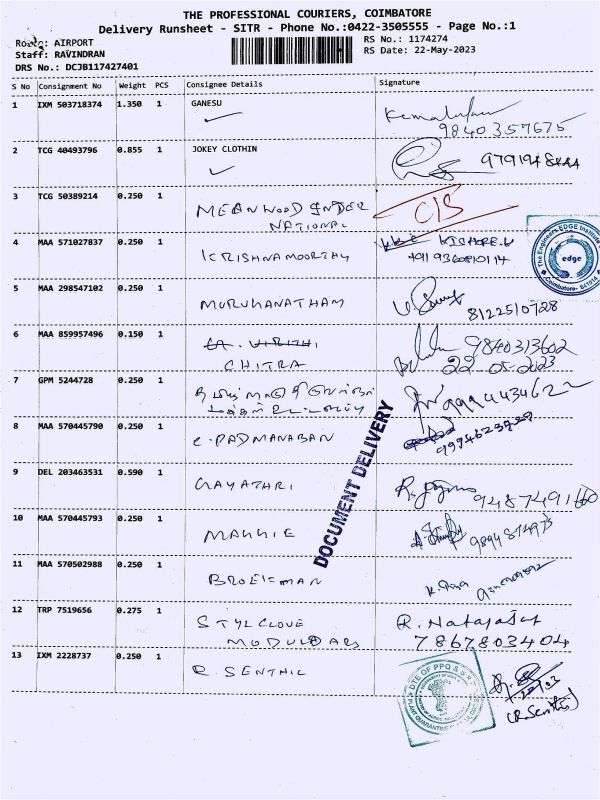 THE PROFESSIONAL COURIERS, COIMBATORE
Delivery Runsheet - SITR - Phone No.:0422-3505555 - Page No.:1
Route: AIRPORT
RS No.: 1174274
Staff: RAVINDRAN
RS Date: 22-May-2023
DRS No.: DCJB117427401
S No Consignment No Weight PCS Consignee Details Signature
1 IXM 503718374 1.350 1 GANESU
9840357675
2 TCG 40493796 0.855 1 JOKEY CLOTHIN
3 TCG 50389214 0.250 1 MEANWOOD INTER
NATIONAL
C/S
4 MAA 571027837 0.250 1 KRISHNAMOORTHY
KISHORE.V
+919360810114
The Engineers EDGE Institute
edge
Coimbatore- 641014
5 MAA 298547102 0.250 1 MURUKANATHAM
8122510728
6 MAA 859957496 0.150 1
CHITRA
9840313602
22 05-2023
7 GPM 5244728 0.250 1
9994434622
8 MAA 570445790 0.250 1 C. PADMANABAN
DOCUMENT DELIVERY
9 DEL 203463531 0.590 1 GAYATHRI
9487491660
10 MAA 570445793 0.250 1 MAGGIE
11 MAA 570502988 0.250 1 BROEKMAN
12 TRP 7519656 0.275 1 STYLCLOVE
MODULARS
R. Natarajan
7867803404
13 IXM 2228737 0.250 1 R. SENTHIL
DTE OF PPQ & S
(R.Senthil)